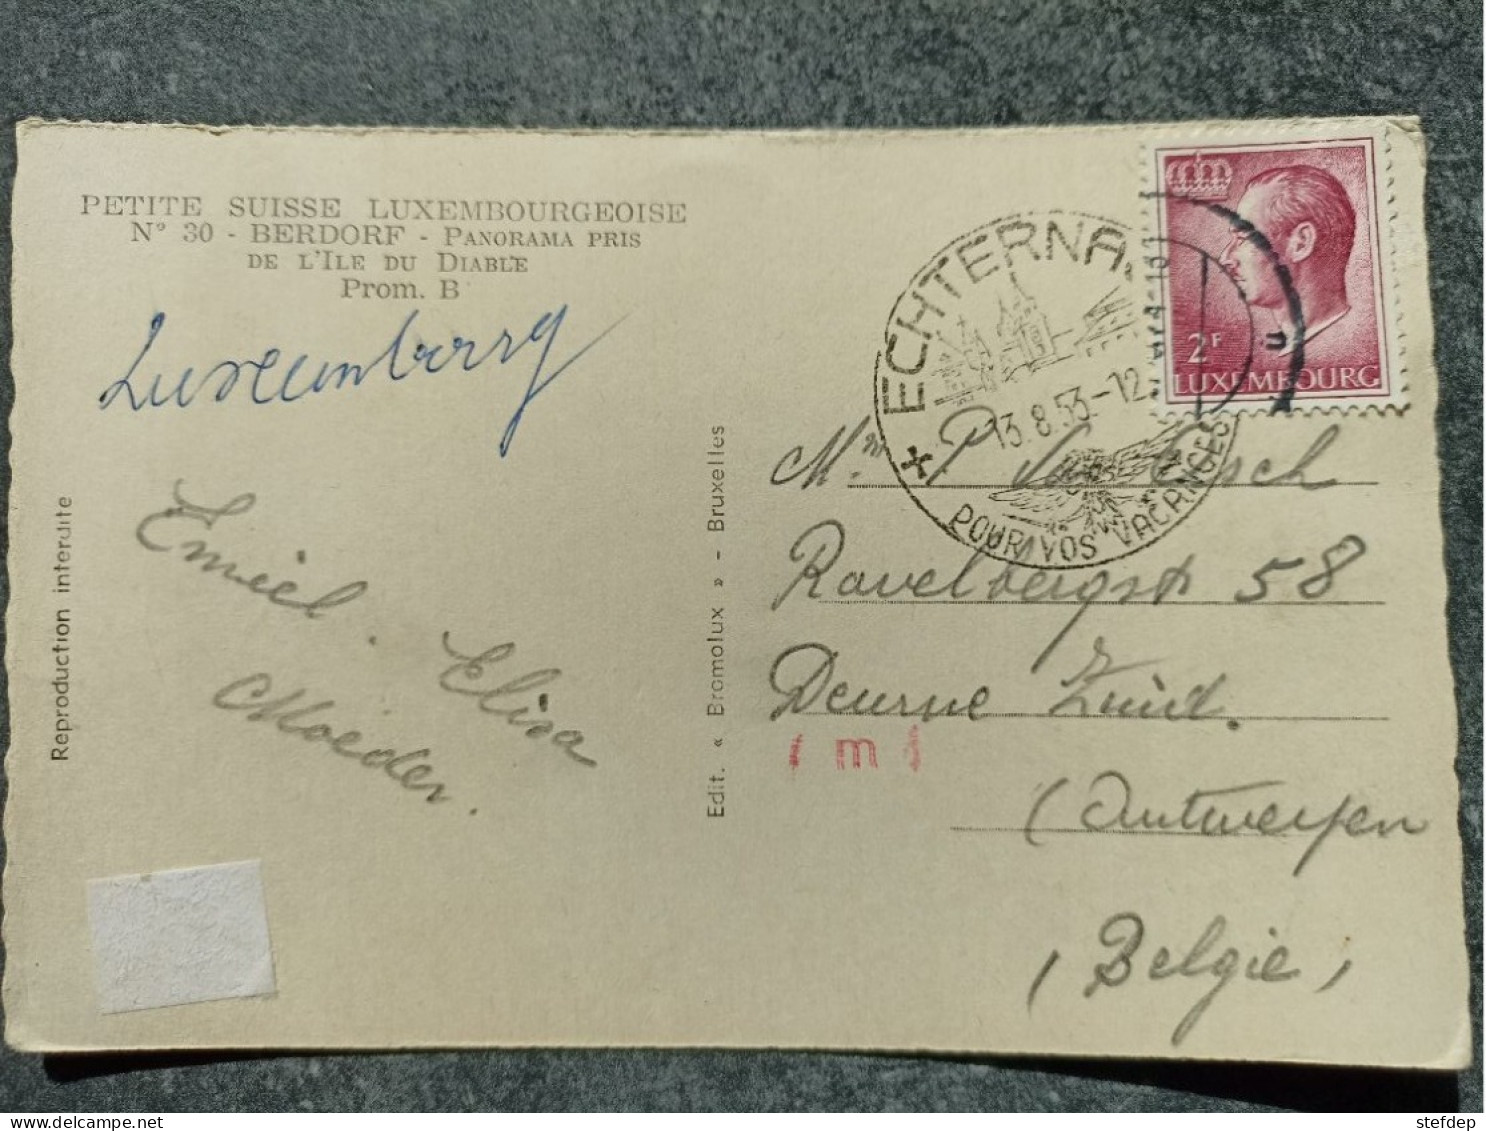 PETITE SUISSE LUXEMBOURGEOISE
N° 30 - BERDORF - PANORAMA PRIS
DE L'ILE DU DIABLE
Prom. B
Luxemburg
Emiel. Elisa
Moeder.
Reproduction interdite
Edit. « Bromolux » - Bruxelles
ECHTERNA
13.8.53.-12
POUR VOS VACANCES
2F
LUXEMBOURG
Mr P. Van
Ravelbergstr 58
Deurne Zuid.
( m )
(Antwerpen
(België)
stefdep